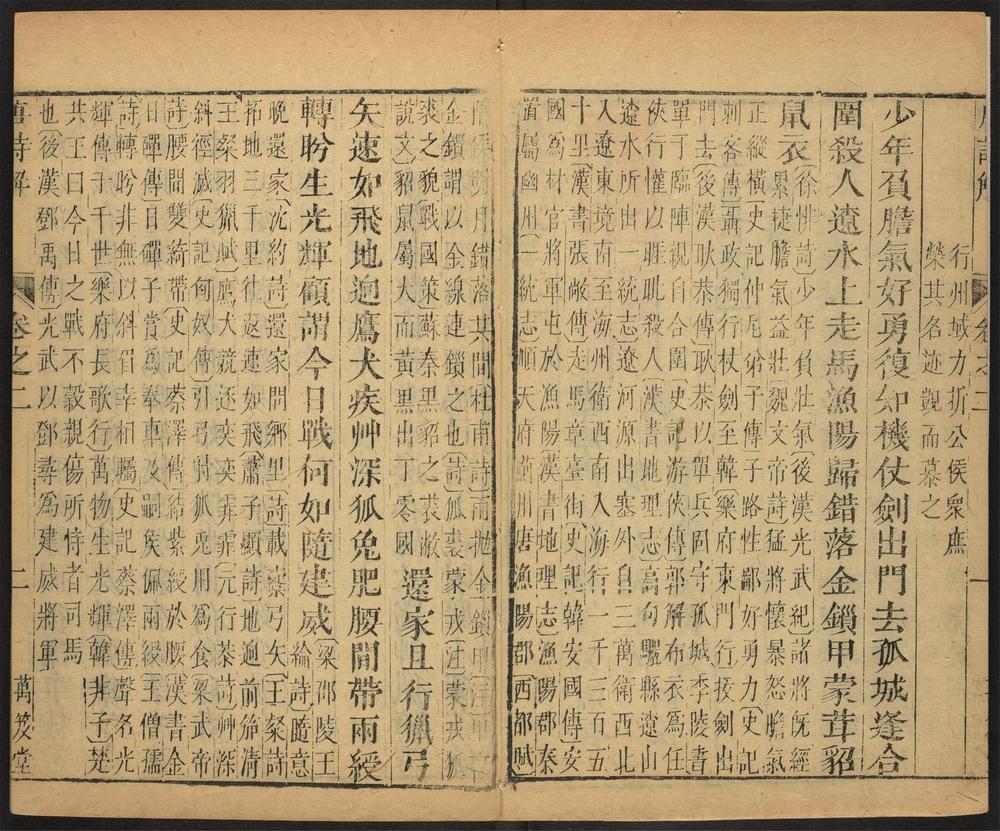 行州域力折公侯衆庶
榮其名迹覬而慕之
少年負膽氣好勇復知機仗劍出門去孤城逢合
圍殺人遼水上走馬漁陽歸錯落金鎖甲蒙茸貂
鼠衣
徐悱詩少年負壯氣後漢光武紀諸將旣經
累捷膽氣益壯魏文帝詩猛將懷暴怒膽氣
正縱橫史記仲尼弟子傳子路性鄙好勇力史記
刺客傳聶政獨行杖劍至韓樂府東門行拔劍出
門去後漢耿恭傳耿恭以單兵固守孤城李陵書
單于臨陣親自合圍史記游俠傳郭解布衣爲任
俠行權以睚眦殺人漢書地理志高句驪縣遼山
遼水所出一統志遼河源出塞外自三萬衛西北
入遼東境南至海州衛西南入海行一千三百五
十里漢書張敞傳走馬章臺街史記韓安國傳安
國爲材官將軍屯於漁陽漢書地理志漁陽郡秦
置屬幽州一統志順天府薊州唐漁陽郡西都賦
隋侯明月錯落其間杜甫詩雨抛金鎖甲注
金鎖謂以金線連鎖之也詩狐裘蒙戎注蒙戎狐
裘之貌戰國策蘇秦黑貂之裘敝
說文貂鼠屬大而黃黑出丁零國
還家且行獵弓
矢速如飛地迥鷹犬疾艸深狐兔肥腰間帶兩綬
轉盼生光輝顧謂今日戰何如隨建威
梁邵陵王
綸詩隨意
晚還家沈約詩還家問鄉里詩載櫜弓矢王粲詩
拓地三千里往返速如飛蕭子顯詩地迥前笳清
王粲羽獵賦鷹犬競逐奕奕霏霏元行恭詩艸深
斜徑滅史記匈奴傳引弓射狐兎用爲食梁武帝
詩腰間雙綺帶史記蔡澤傳結紫綬於腰漢書金
日磾傳日磾子賞爲奉車及嗣侯佩兩綬王僧孺
詩轉盼非無以斜眉幸相屬史記蔡澤傳聲名光
輝傳于千世樂府長歌行萬物生光輝韓非子楚
共王曰今日之戰不穀親傷所恃者司馬
也後漢鄧禹傳光武以鄧尋爲建威將軍
唐詩解 卷之二 二 萬笈堂